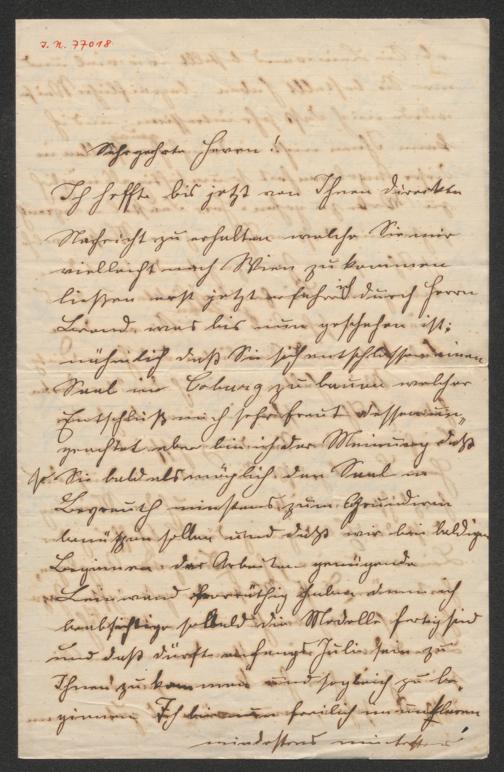 I. N. 77018
Sehrgeehrte Herrn!
Ich hoffte bis jetzt von Ihnen direckte
Nachricht zu erhalten welche Sie mir
vielleicht nach Wien zu kommen
ließen erst jetzt erfahre ich durch Herrn
Brand, was bis nun geschehen ist;
nähmlich daß Sie sich entschlossen einen
Saal in Coburg zu bauen welcher
Entschluß mich sehr freut dessen un-
geachtet aber bin ich der Meinung daß
Sie bald als möglich den Saal in
Beyreuth mindestens zum Grundiren
benützen sollen und daß wir bei baldigen
Beginnen der Arbeiten genügende
Leinwand Vorräthig haben denn ich
beabsichtige sobald die Modelle fertig sind
und daß dürfte anfangs Juli sein zu
Ihnen zu kommen und sogleich zu be-
ginnen Ich bin nun freilich im unklaren
mindestens